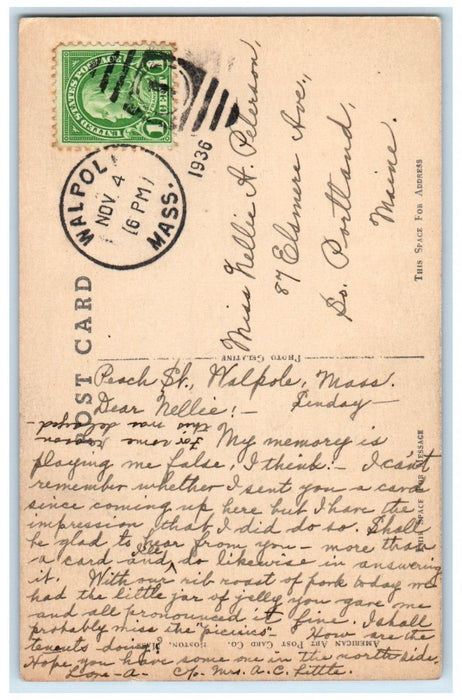 UNITED STATES POSTAGE
1 CENT 1
WALPOLE
NOV 4
6 PM
MASS.
1936
POST CARD
Miss Nellie A. Peterson,
87 Elsmere Ave.,
So. Portland,
Maine.
THIS SPACE FOR ADDRESS
PHOTO GELATINE
THIS SPACE FOR MESSAGE
AMERICAN ART POST CARD CO. BOSTON,
Peach St., Walpole, Mass.
Dear Nellie:- Sunday-
For some reason
this was delayed
My memory is
playing me false, I think:- I can't
remember whether I sent you a card
since coming up here but I have the
impression that I did do so. Shall
be glad to hear from you - more than
a card and I'll do likewise in answering
it. With our rib roast of pork today we
had the little jar of jelly you gave me
and all pronounced it fine. I shall
probably miss the "picnics"- How are the
tenants doing?
Hope you have some one in the north side.
Love - A- c/o Mrs. A. C. Little.